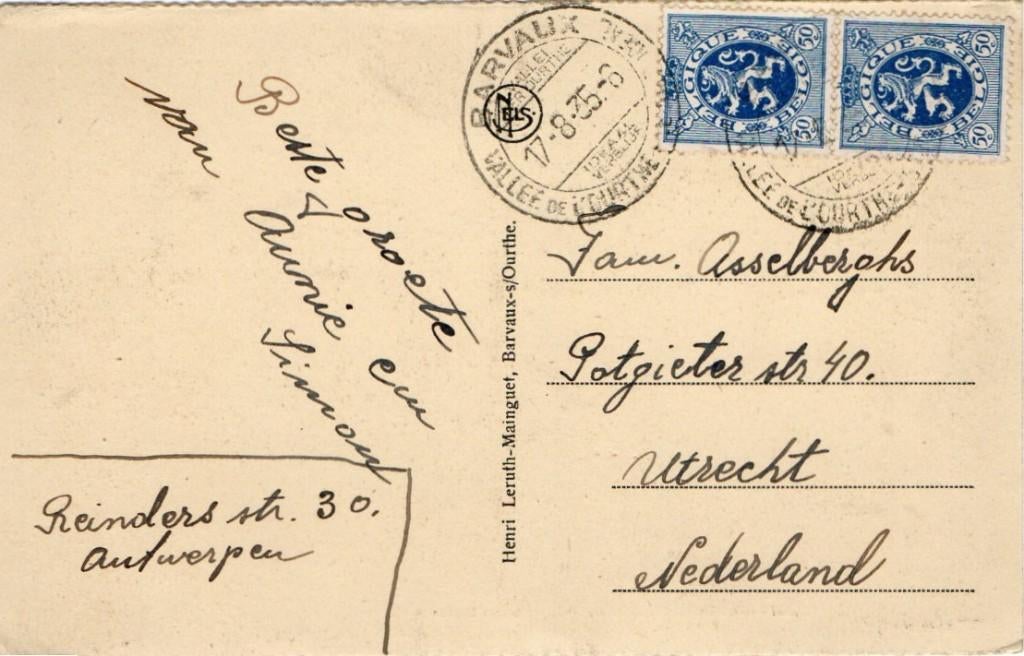 Beste groete
van
Annie en
Simon
Reinders str. 30.
Antwerpen
Henri Leruth-Mainguet, Barvaux-s/Ourthe.
NELS
BARVAUX
17-8-35-8
VALLEE DE L'OURTHE
BELGIQUE
BELGIE
50
50
BELGIQUE
BELGIE
50
50
VALLEE DE L'OURTHE
Fam. Asselberghs
Potgieter str 40.
Utrecht
Nederland